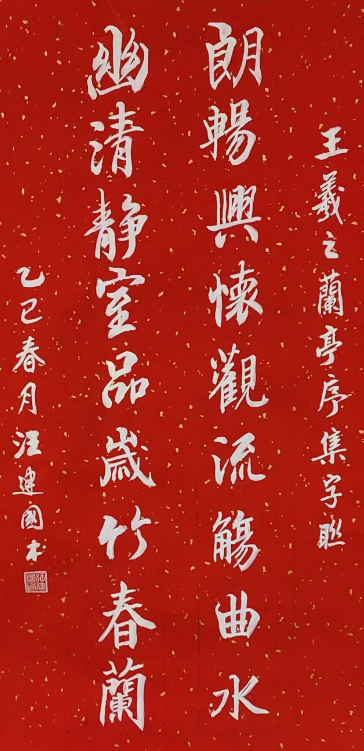 王羲之蘭亭序集字聯
朗暢興懷觀流觴曲水
幽清静室品歲竹春蘭
乙巳春月汪建國書